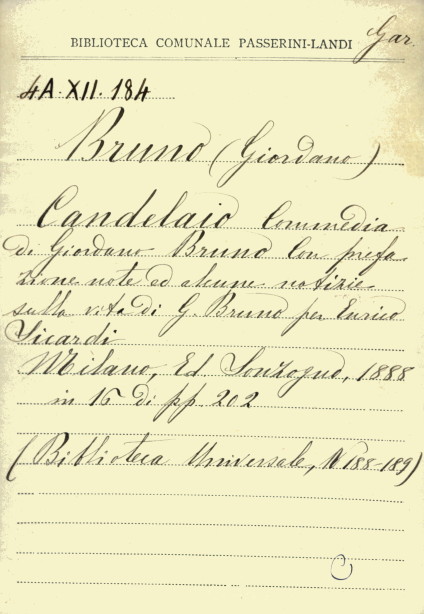 Gar.
BIBLIOTECA COMUNALE PASSERINI-LANDI
4A.XII.184
Bruno (Giordano)
Candelaio Commedia
di Giordano Bruno Con prefa
zione note ed alcune notizie
sulla vita di G. Bruno per Enrico
Sicardi
Milano, Ed Sonzogno, 1888
in 16 di pp 202
(Biblioteca Universale, N 188-189)
C